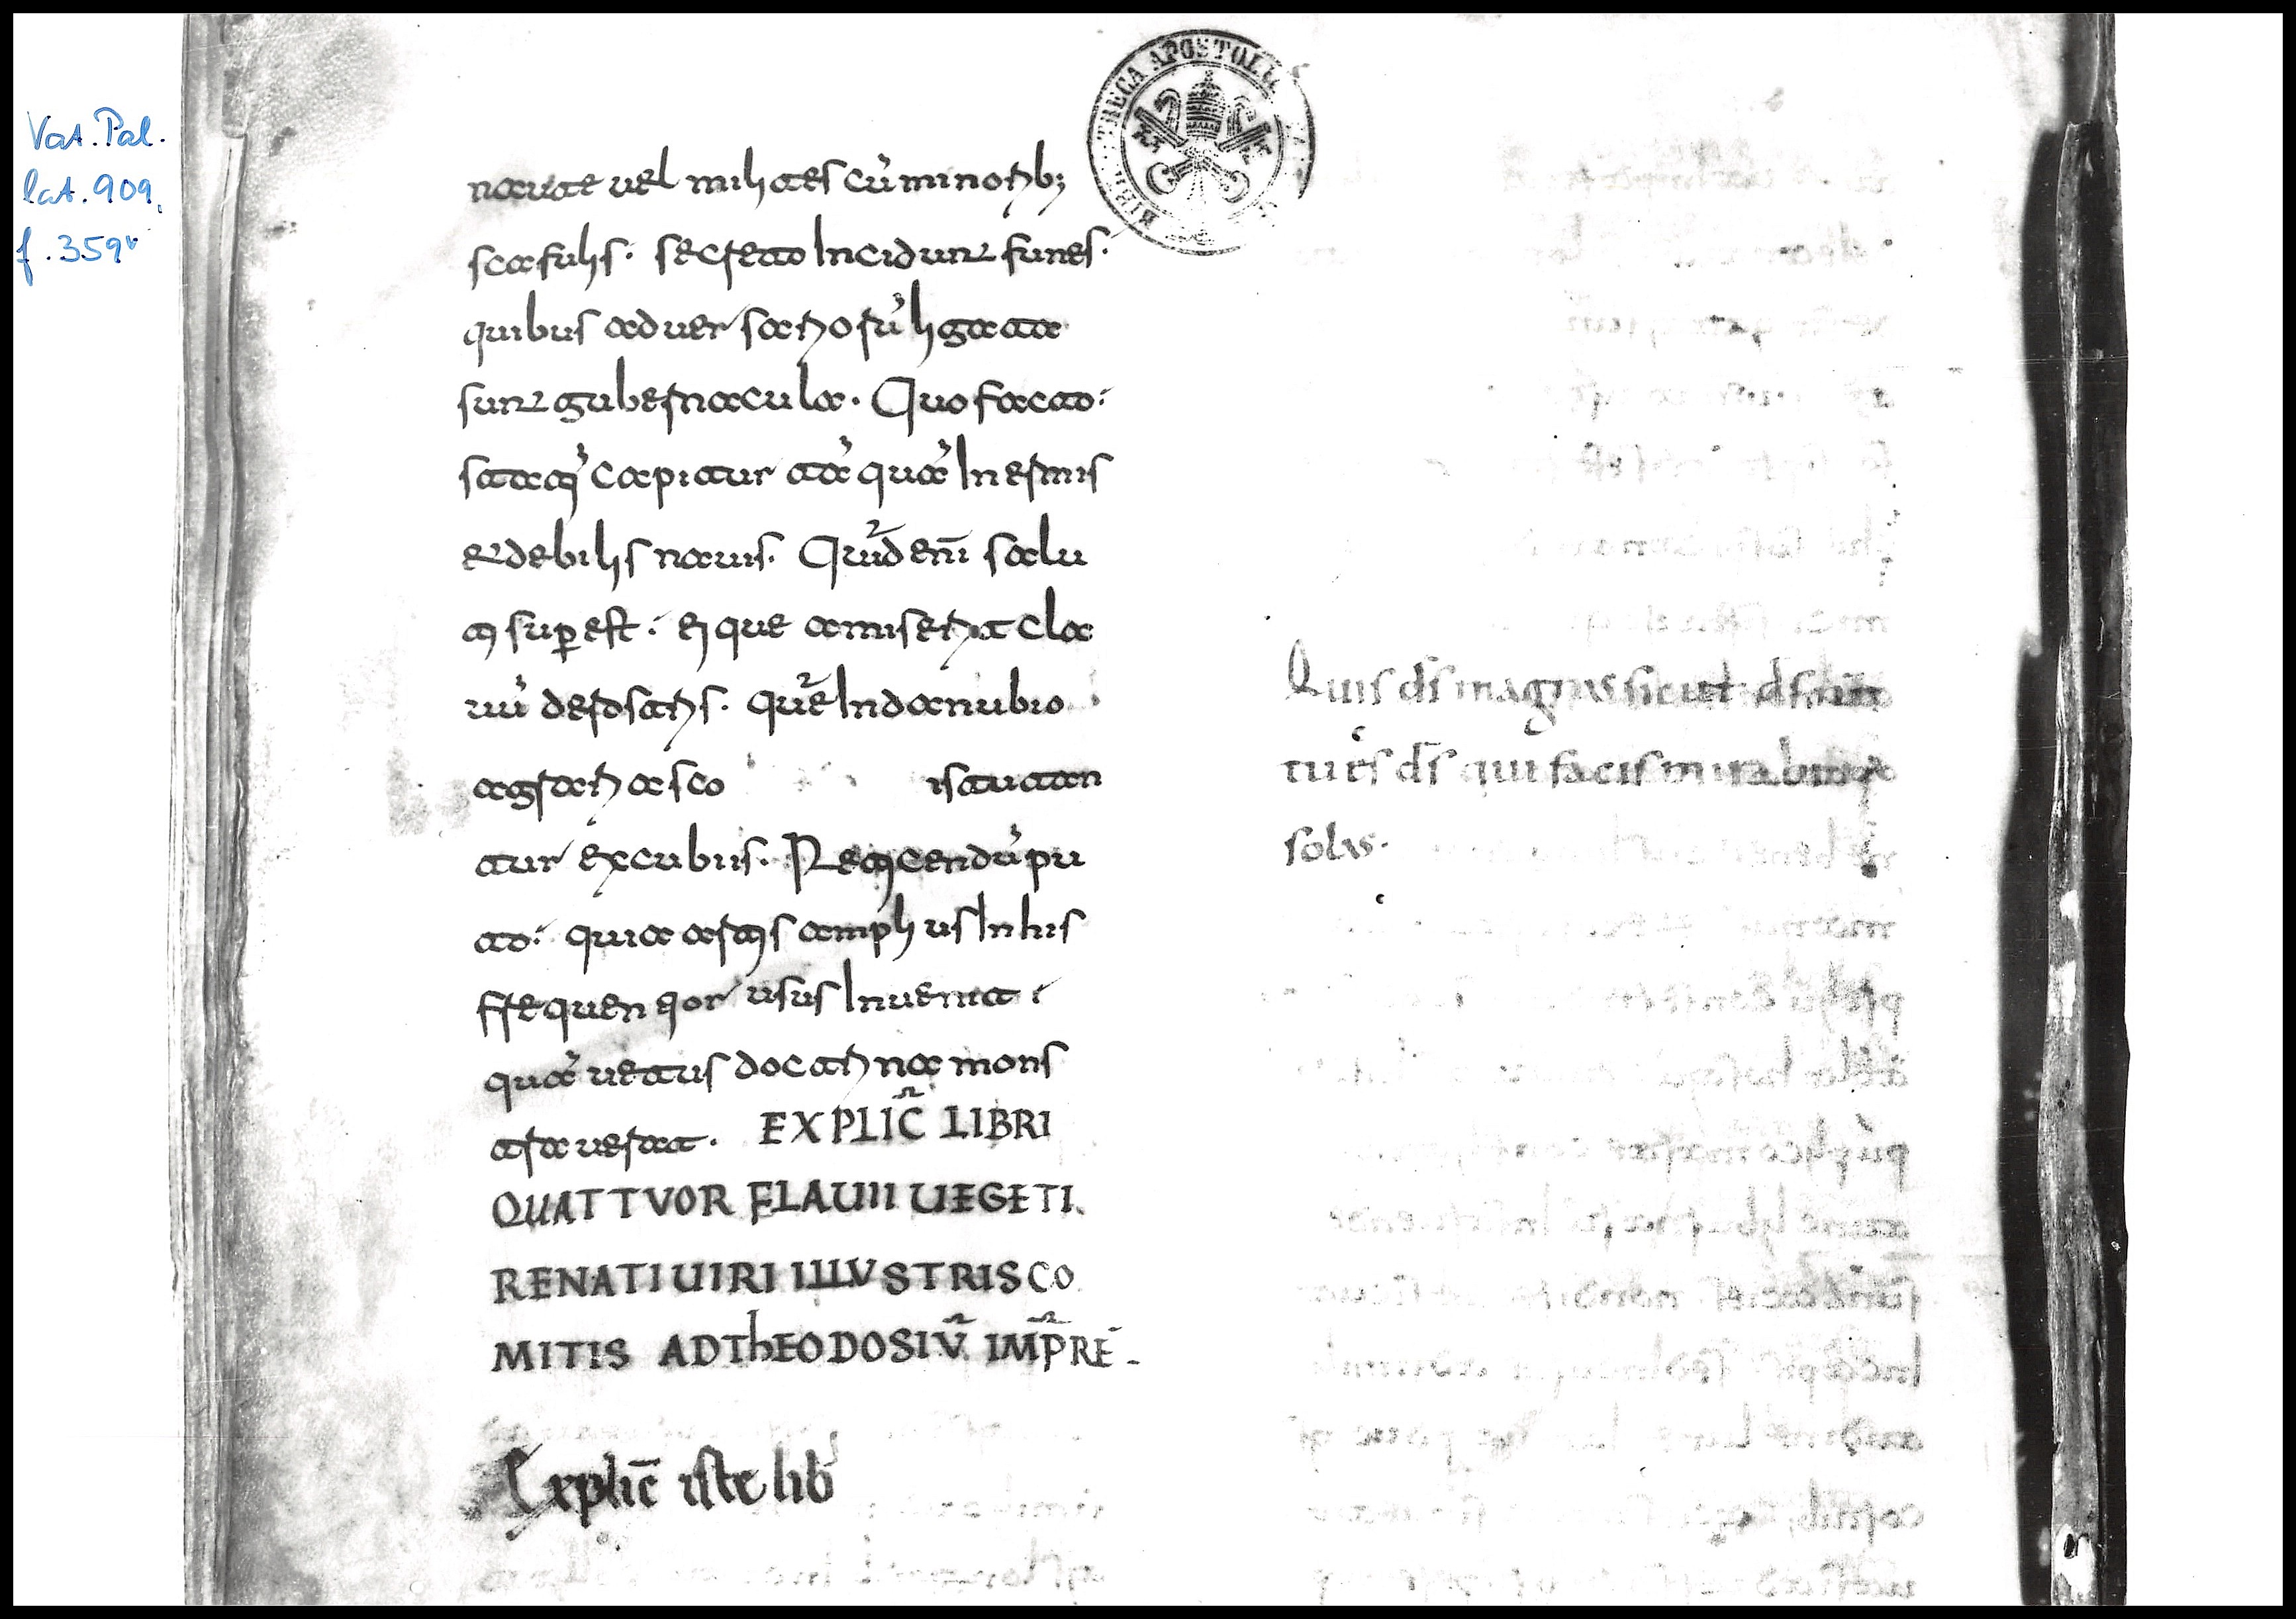 Vat. Pal.
lat. 909,
f. 359v
BIBLIOTHECA APOSTOLICA
naute uel milites cū minorib;
scafulis. secreto Incidunt funes.
quibus aduersariorū ligata
sunt gubernacula. Quo facto.
statim capitur tā quā Inermis
et debilis nauis. Quid enī salu
tis sup est. ei que amiserit cla
uū derosatris. quē In danubio
agrariasco istutan
tur excubiis. Reticendū pu
to. quia artis amplius In his
frequentior usus Inuenit.
quā uetus doctrina mons
trauerat. EXPLIC̄ LIBRI
QUATTVOR FLAUIII UEGETI.
RENATI UIRI ILLVSTRIS CO
MITIS AD ThEODOSIV̄ IMP̄RE-
Explic̄ iste lib
Quis ds̄ magnus sicut ds̄
tu es ds̄ qui facis mirabilia
solus.